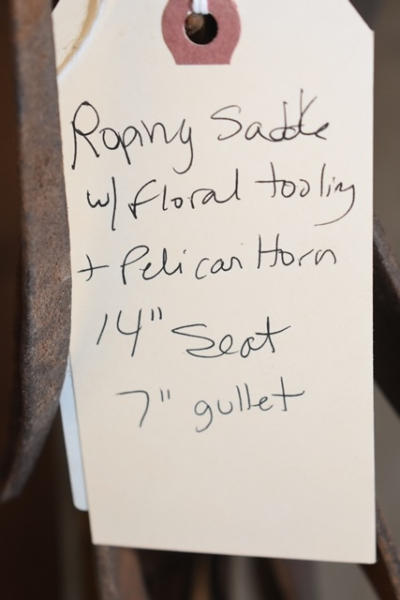 Roping Saddle
w/ floral tooling
+ Pelican Horn
14" Seat
7" gullet